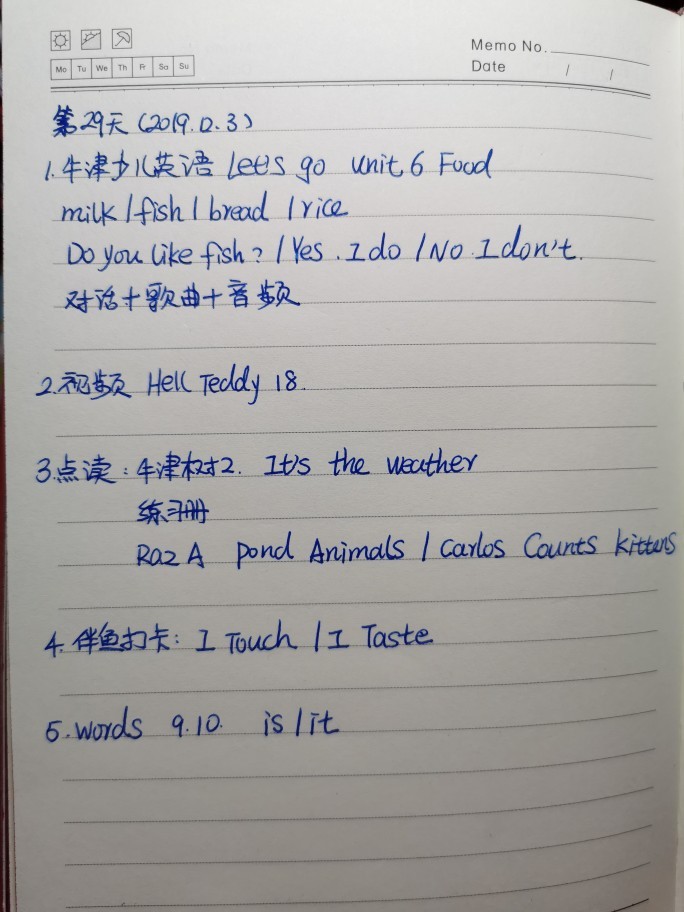 Memo No.
Mo Tu We Th Fr Sa Su
Date / /
第29天 (2019.12.3)
1.牛津少儿英语 Let's go unit 6 Food
milk / fish / bread / rice
Do you like fish? / Yes. I do / No. I don't.
对话+歌曲+音频
2.视频 Hell Teddy 18.
3.点读: 牛津树2. It's the weather
练习册
Raz A pond Animals / Carlos Counts kittens
4. 伴鱼打卡: I Touch / I Taste
5. words 9.10. is / it